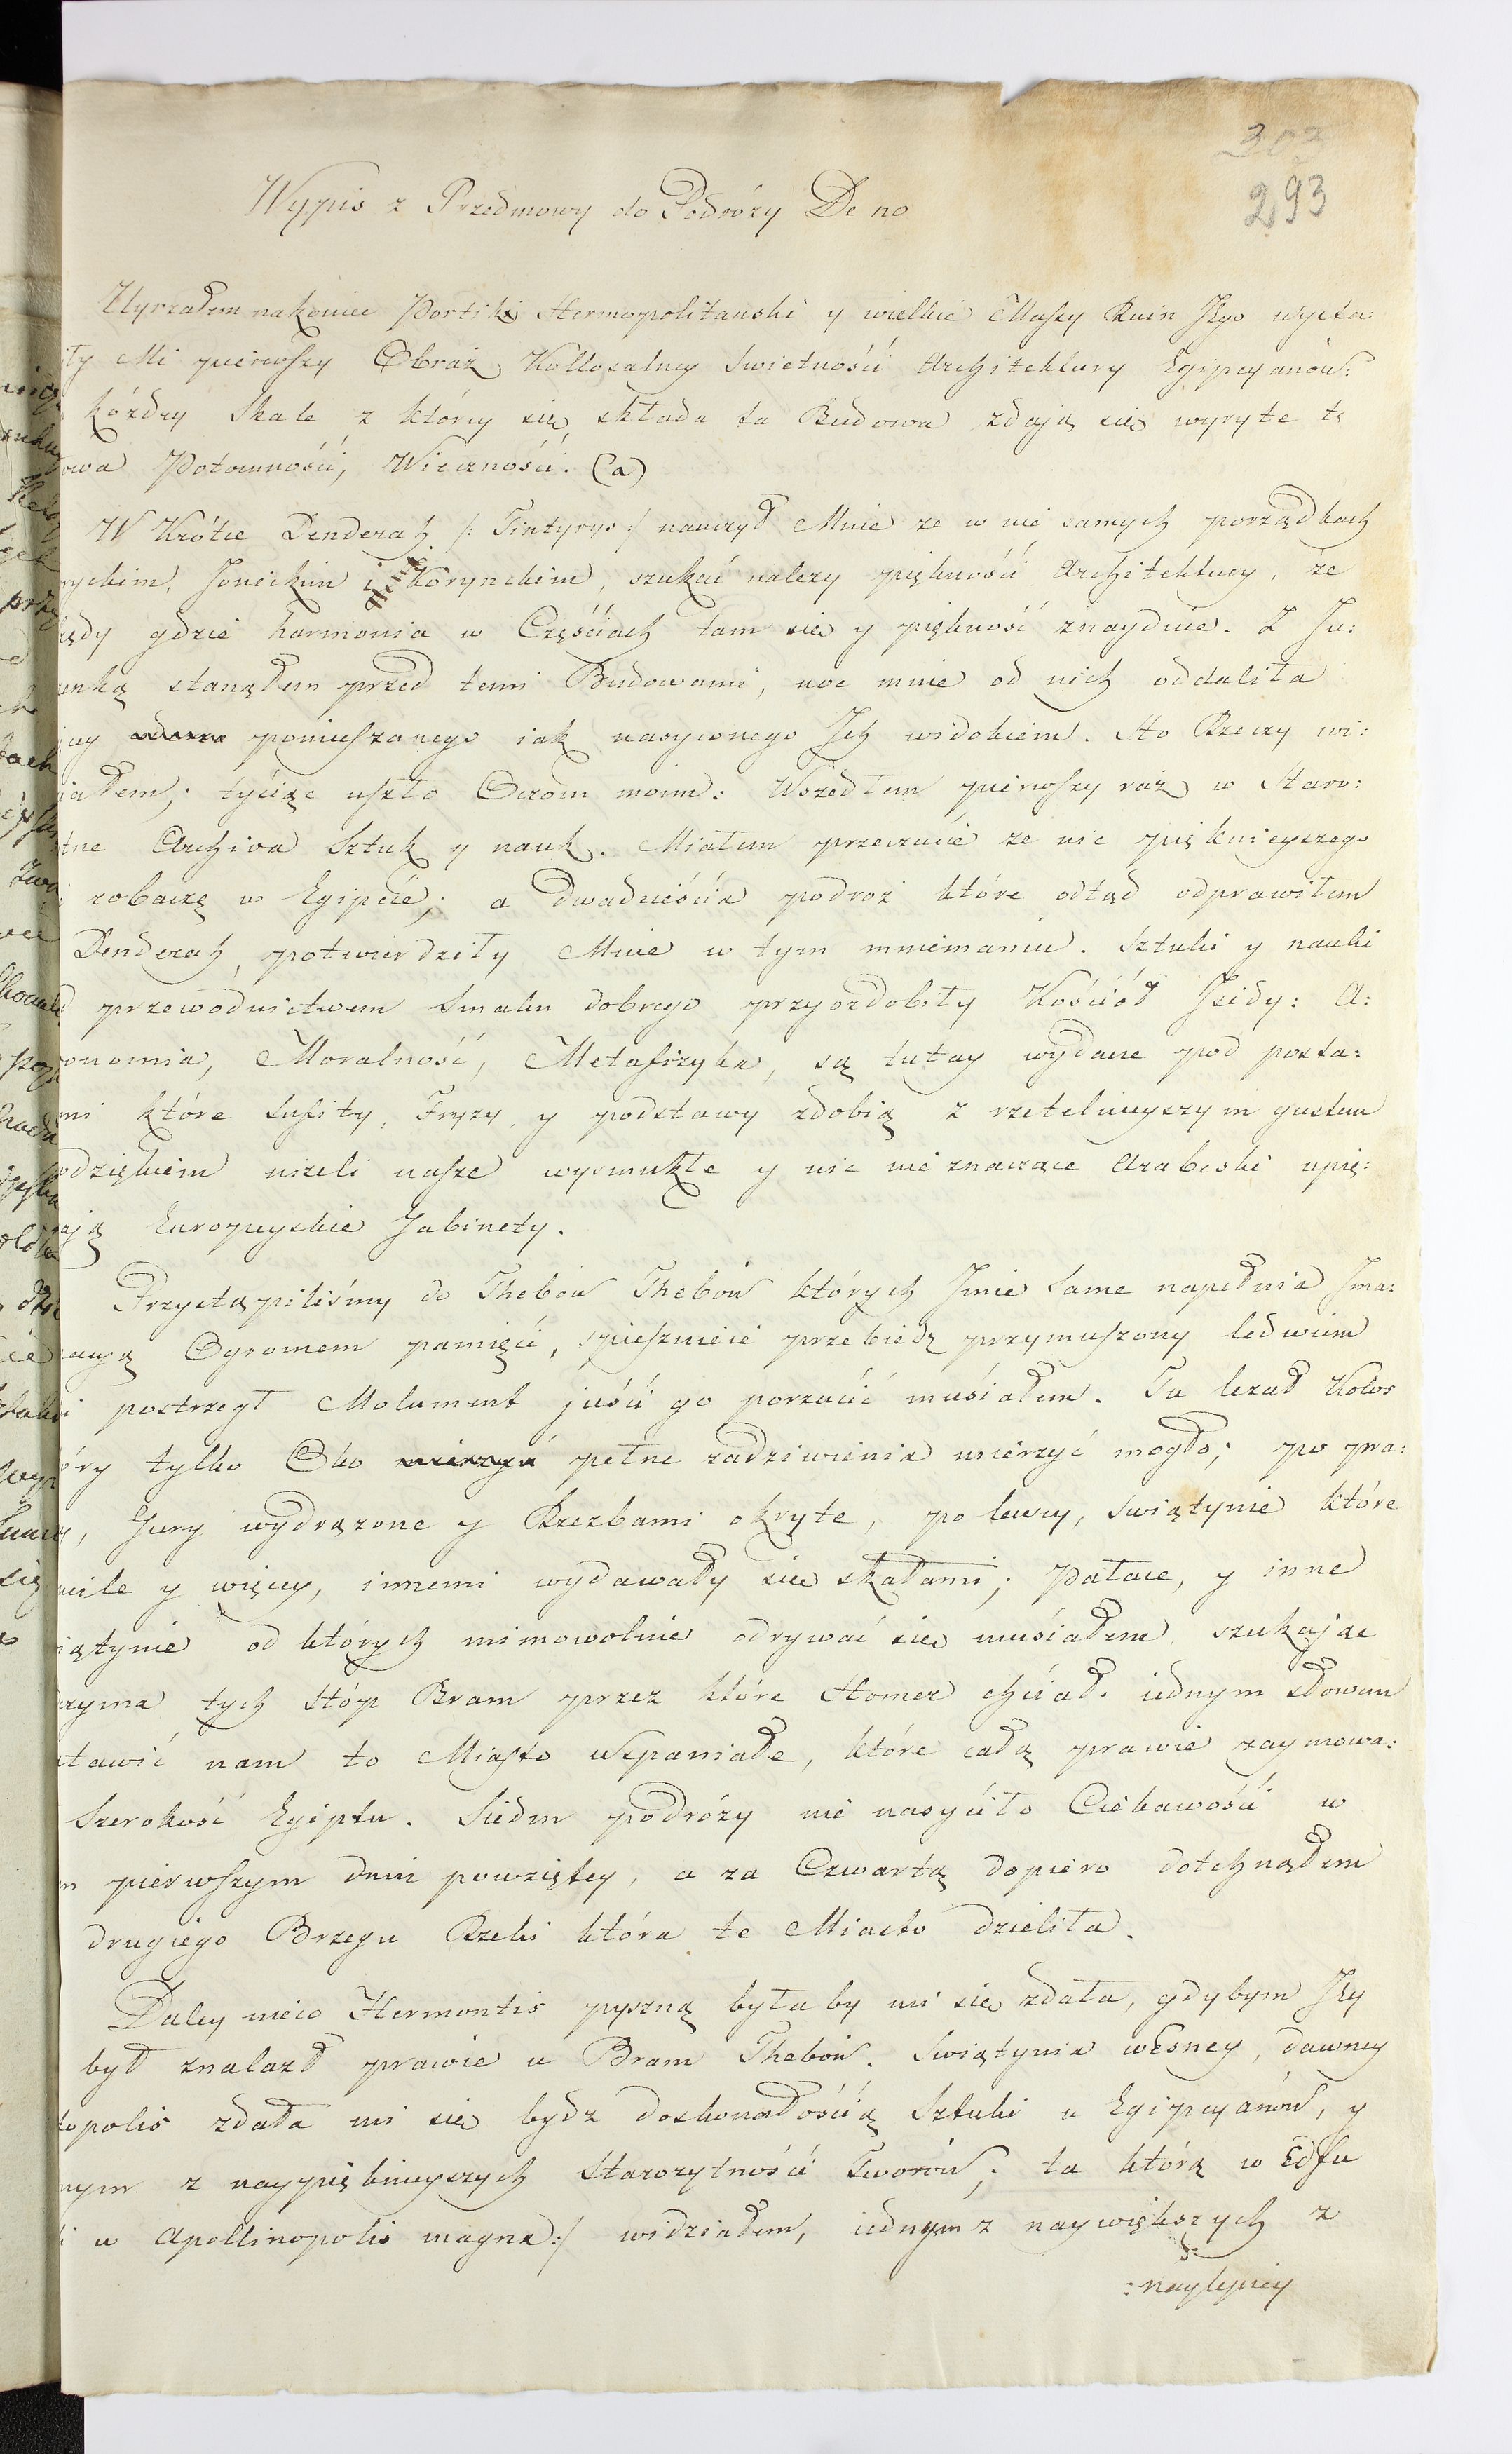 303
293
Wypis z Przedmowy do Podróży De no
Uyrzałem nakoniec Portik Hermopolitański y wielkie Massy Ruin Jego wysta:
ły Mi pierwszy Obraz Kollosalney Swietności Architektury Egipcyanów:
każdey Skale z którey się składa ta Budowa zdają się wyryte te
owa Potomności, Wieczności. (a)
W Krótce Denderah /: Tintyrys :/ nauczył Mnie ze w nie samych porządkach
ryckim, Jonickim i Korynckim, szukać nalezy piękności Architektury, ze
ędy gdzie harmonia w Częściach tam się y piękność znayduie. Z Ju:
enką stanąłem przed temi Budowami, noc mnie od nich oddaliła
iey pomieszanego iak nasyconego Jch widokiem. Sto Rzeczy wi:
iałem; tysiąc uszło Oczom moim: Wszedłem pierwszy raz w Staro:
tne Archiva Sztuk y nauk. Miałem przeczucie ze nic pięknieyszego
zobaczę w Egipcie; a dwadzieścia podroz które odtąd odprawiłem
Denderah, potwierdziły Mnie w tym mniemaniu. Sztuki y nauki
d przewodnictwem Smaku dobrego przyozdobiły Kościół Jzidy: A:
onomia, Moralność, Metafizyka, są tutay wydane pod posta:
mi które Sufity, Fryzy, y podstawy zdobią z rzetelnieyszym gustem
wdziękiem nizeli nasze wysmukłe y nic nie znaczące Arabeski upię:
ają Europeyskie Gabinety.
Przystąpiliśmy do Thebow Thebów których Jmie Same napełnia Jma:
acyą Ogromem pamięci, spiesznieie przebiedz przymuszony ledwiem
i postrzegł Molument juści go porzucić musiałem. Tu lezał Kolos
óry tylko Oko pełne zadziwienia mierzyć mogło; po pra:
, Gury wydrązone y Rzezbami okryte, po lewey, Swiątynie które
mile y więcey, innemi wydawały się skałami; Pałace, y inne
iątynie od których mimowolnie odrywać się musiałem szukaiąc
zyma tych Stóp Bram przez które Homer chciał iednym słowem
stawić nam to Miasto Wspaniałe, które całą prawie zaymowa:
Szerokość Egiptu. Siedm podróży nie nasyciło Ciekawości w
m pierwszym dniu powziętey, a za Czwartą dopiero dotchnąłem
drugiego Brzegu Rzeki która te Miasto dzieliła.
Daley nieco Hermontis pyszną byłaby mi się zdała, gdybym Jey
był znalazł prawie u Bram Thebów. Swiątynia wEsney, dawney
topolis zdała mi się bydz doskonałością Sztuki u Egipcyanów, y
nym z naypięknieyszych Starozytności Tworów; ta którą w Edfu
i w Apollinopolis magna :/ widziałem, iednym z naywiększych z
:naylepiey